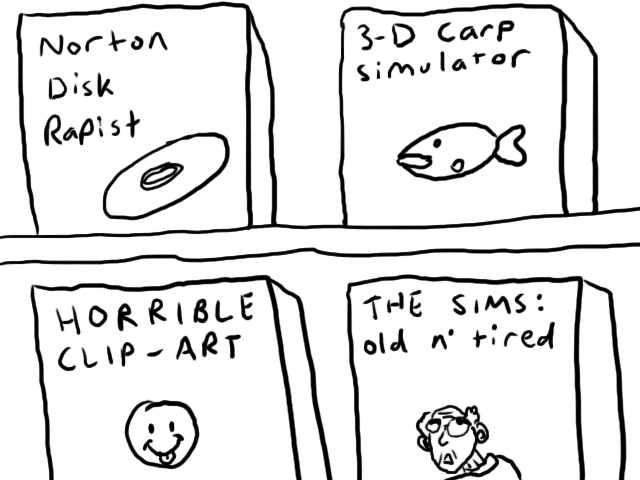 Norton
Disk
Rapist
3-D Carp
simulator
HORRIBLE
CLIP-ART
THE SIMS:
old n' tired